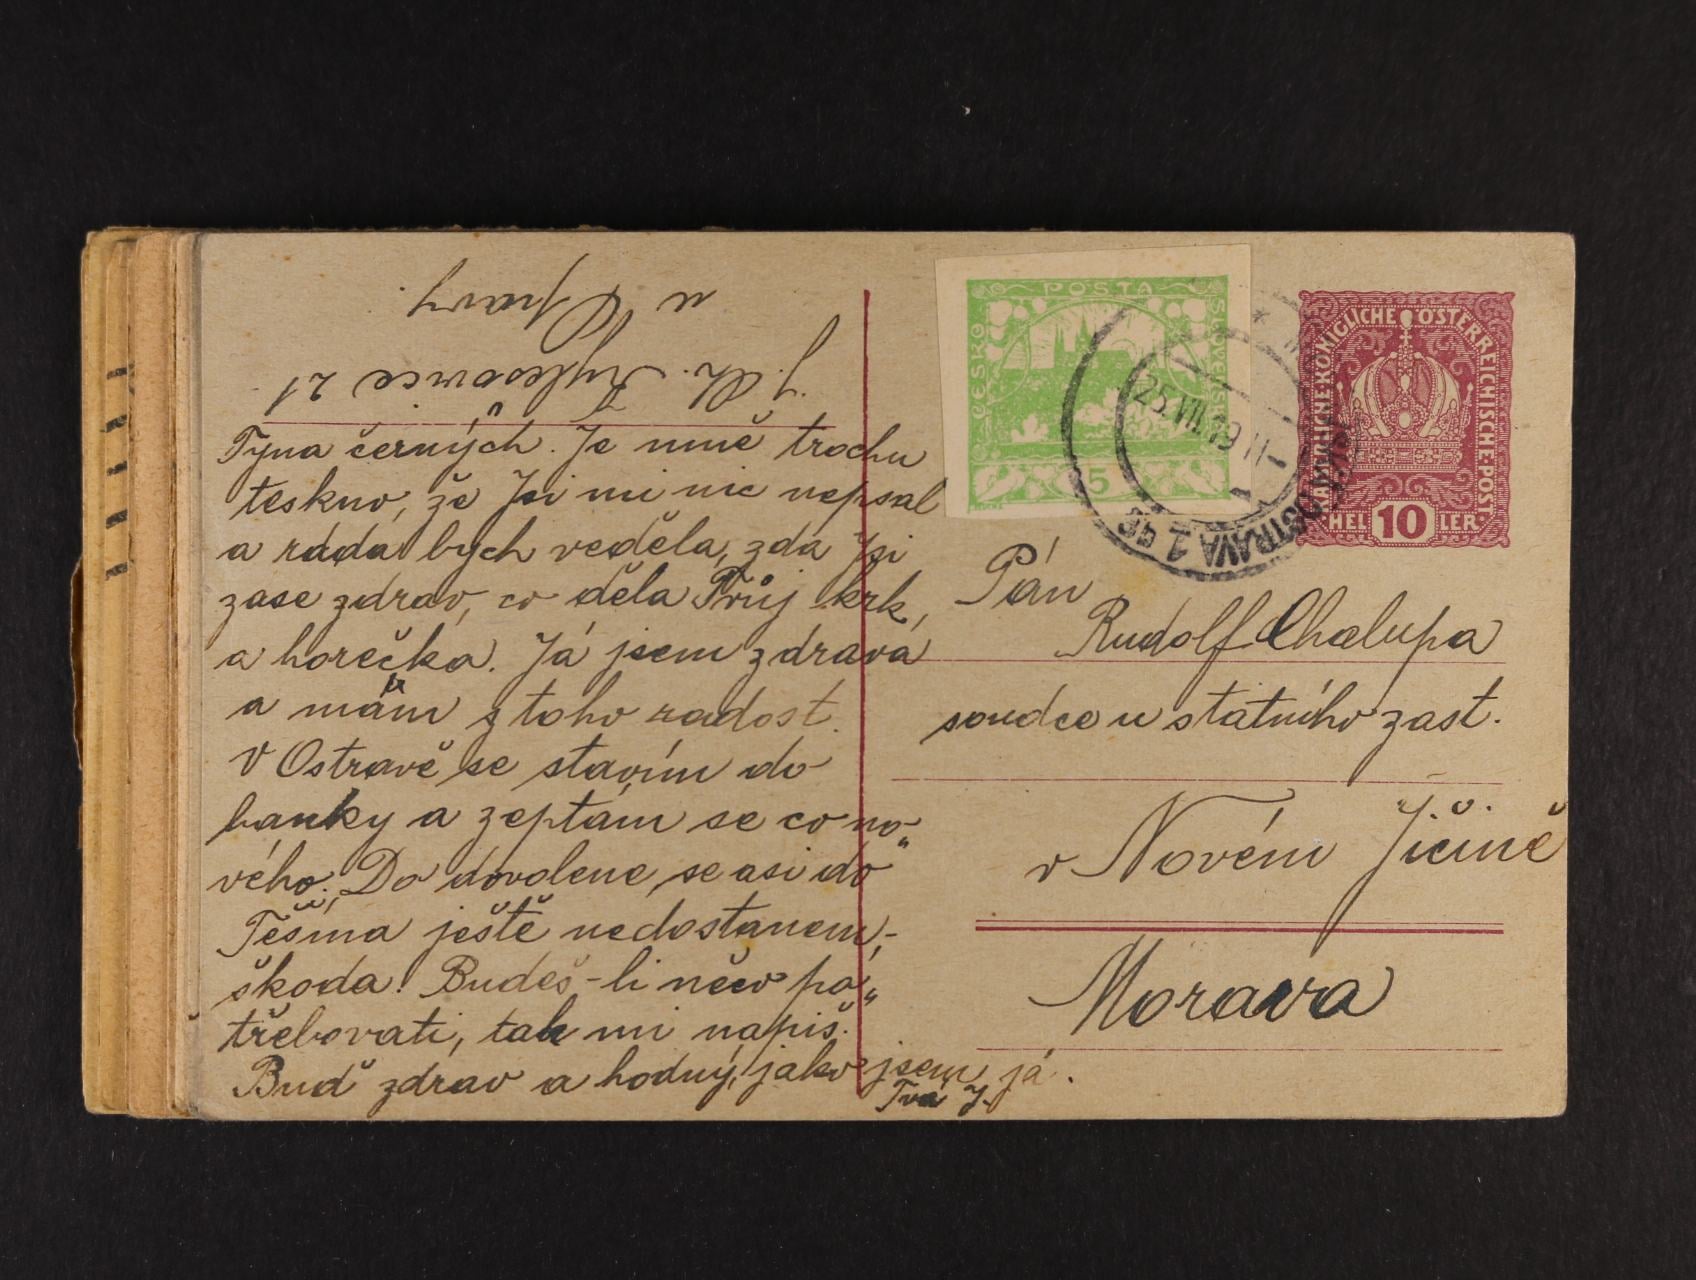 u Opavy.
J. Ch. Kylešovice 21
Týna černých. Je mně trochu
teskno, že Jsi mi nic nepsal
a ráda bych veděla, zda Jsi
zase zdráv, co dělá Tvůj krk,
a horečka. Já jsem zdravá
a mám z toho radost.
V Ostravě se stavím do
banky a zeptám se co no„
vého. Do dovolené se asi do
Těšína ještě nedostanem,-
škoda! Budeš-li něco po„
třebovati, tak mi napiš.
Buď zdráv a hodný, jako jsem já.
Tvá J.
POSTA
ČESKO
SLOVENSKÁ
5
25.VII.19 11-
OSTRAVA 1
KAISERLICHE KÖNIGLICHE ÖSTERREICHISCHE POST
HEL 10 LER
Pán
Rudolf Chalupa
soudce u státního zast.
v Novém Jičíně
Morava